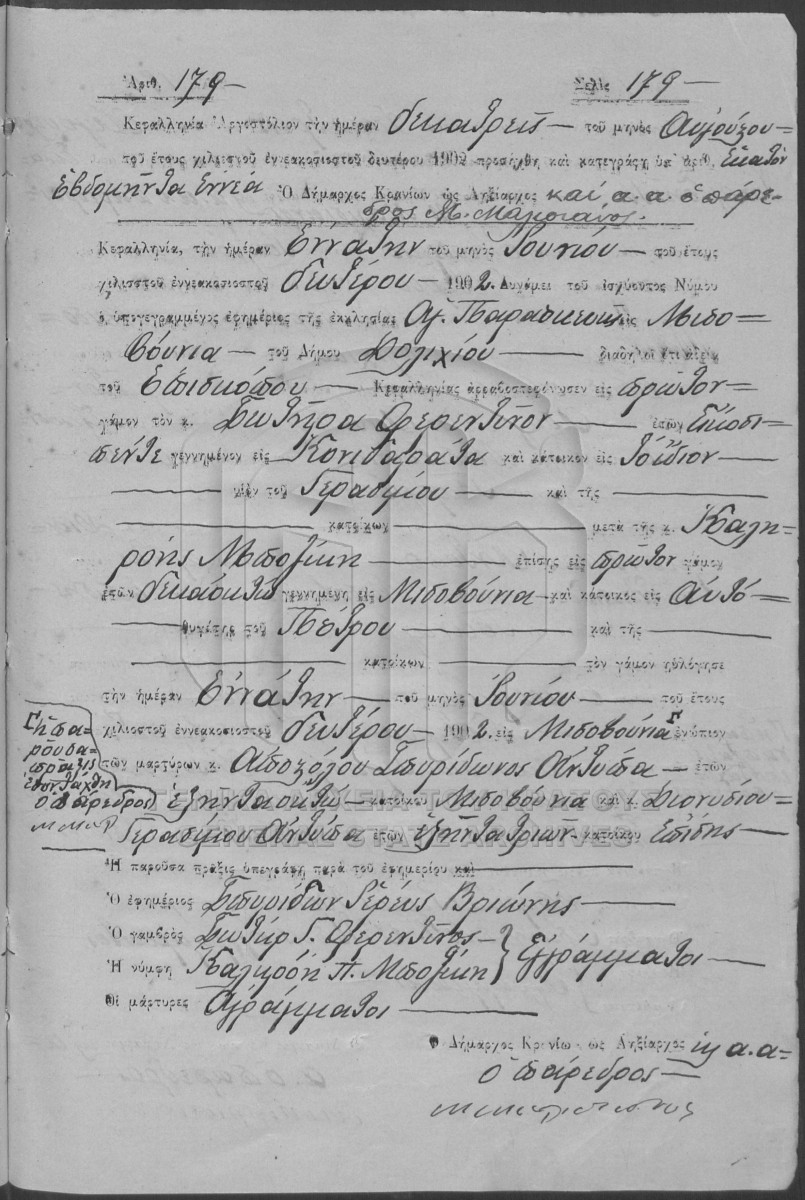 Ἀριθ. 179 — Σελὶς 179 —
Κεφαλληνία Ἀργοστόλιον τὴν ἡμέραν δεκατρεῖς — τοῦ μηνὸς Αὐγούστου —
τοῦ ἔτους χιλιοστοῦ ἐννεακοσιοστοῦ δευτέρου 1902 προσήχθη καὶ κατεγράφη ὑπ' ἀριθ. Ἑκατὸν
ἑβδομῆντα ἐννέα Ὁ Δήμαρχος Κρανίων ὡς Ληξίαρχος καὶ α. α. ὁ πάρε-
δρος Μ.
Κεφαλληνία, τὴν ἡμέραν Ἐννάτην τοῦ μηνὸς Ἰουνίου — τοῦ ἔτους
χιλιοστοῦ ἐννεακοσιοστοῦ δευτέρου — 1902. Δυνάμει τοῦ ἰσχύοντος Νόμου
ὁ ὑπογεγραμμένος ἐφημέριος τῆς ἐκκλησίας Ἁγ. Παρασκευῆς εἰς Μεσο=
βούνια — τοῦ Δήμου Δολιχίου — διαδηλοῖ ὅτι ἀδείᾳ
τοῦ Ἐπισκόπου — Κεφαλληνίας ἀρραβοστεφάνωσεν εἰς πρῶτον =
γάμον τὸν κ. Σωτῆρα Φερεντῖνον — ἐτῶν Εἴκοσι =
πέντε γεννημένον εἰς Κονιδαράτα καὶ κάτοικον εἰς Τὸ ἴδιον —
— υἱὸν τοῦ Γερασίμου — καὶ τῆς —
— κατοίκων — μετὰ τῆς κ. Καλη=
ρόης — ἐπίσης εἰς πρῶτον γάμον
ἐτῶν δεκαοκτὼ γεννημένη εἰς Μεσοβούνια καὶ κάτοικος εἰς Αὐτό =
— θυγάτηρ τοῦ Πέτρου — καὶ τῆς —
— κατοίκων — τὸν γάμον ηὐλόγησε
τὴν ἡμέραν Ἐννάτην — τοῦ μηνὸς Ἰουνίου — τοῦ ἔτους
χιλιοστοῦ ἐννεακοσιοστοῦ δευτέρου — 1902. εἰς Μεσοβούνια ἐνώπιον
τῶν μαρτύρων κ. Ἀποστόλου Σπυρίδωνος Ἀντύπα — ἐτῶν
ἑξῆντα ὀκτὼ — κατοίκου Μεσοβούνια καὶ κ. Διονυσίου =
Γερασίμου Ἀντύπα ἐτῶν ἑξῆντα τριῶν κατοίκου Ἐπίσης —
Γ ἡ πα=
ροῦσα
πρᾶξις
συνετάχθη
ὁ πάρεδρος
Ἡ παροῦσα πράξις ὑπεγράφη παρὰ τοῦ ἐφημερίου καὶ —
Ὁ ἐφημέριος Σπυρίδων Ἱερεὺς Βριώνης —
Ὁ γαμβρὸς Σωτὴρ Γ. Φερεντῖνος —
Ἡ νύμφη Καλιρόη Π. } Ἐγγράμματοι —
Οἱ μάρτυρες Ἀγράμματοι —
Ὁ Δήμαρχος Κρανίων ὡς Ληξίαρχος κ α. α =
ὁ πάρεδρος —
ΓΕΝΙΚΑ ΑΡΧΕΙΑ ΤΟΥ ΚΡΑΤΟΥΣ